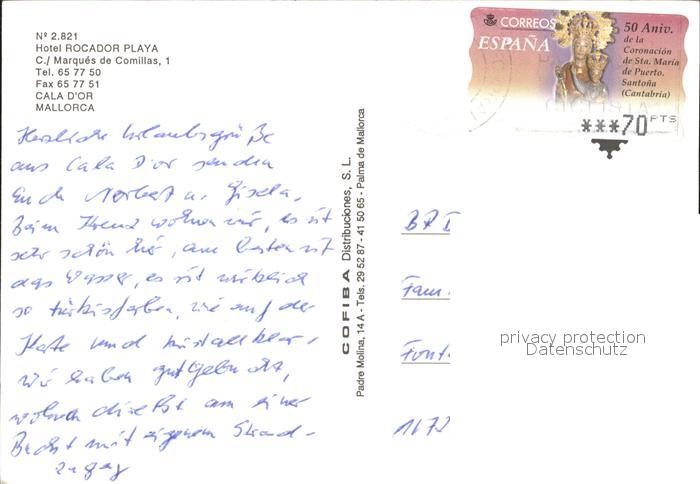 Nº 2.821
Hotel ROCADOR PLAYA
C./ Marqués de Comillas, 1
Tel. 65 77 50
Fax 65 77 51
CALA D'OR
MALLORCA
Herzliche Urlaubsgrüße
aus Cala D'or senden
Euch Norbert u. Gisela.
Beim Kreuz wohnen wir, es ist
sehr schön hier, am besten ist
das Wasser, es ist wirklich
so türkisfarben, wie auf der
Karte und kristallklar,
wir haben gut gebucht,
wohnen direkt an einer
Bucht mit eigenem Strand-
zugang
COFIBA Distribuciones, S. L.
Padre Molina, 14 A - Tels. 29 52 87 - 41 50 65 - Palma de Mallorca
CORREOS
ESPAÑA
50 Aniv.
de la
Coronación
de Sta. María
de Puerto.
Santoña
(Cantabria)
***70 PTS
BRD
Fam.
Font
1672
privacy protection
Datenschutz